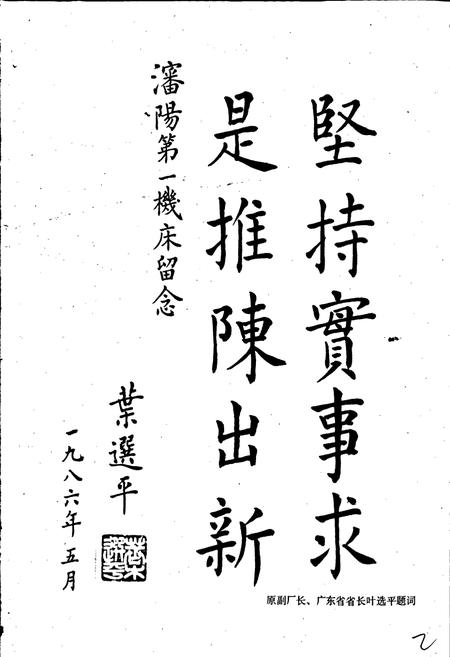 堅持實事求
是推陳出新
瀋陽第一機床留念
葉選平
一九八六年五月
原副厂长、广东省省长叶选平题词